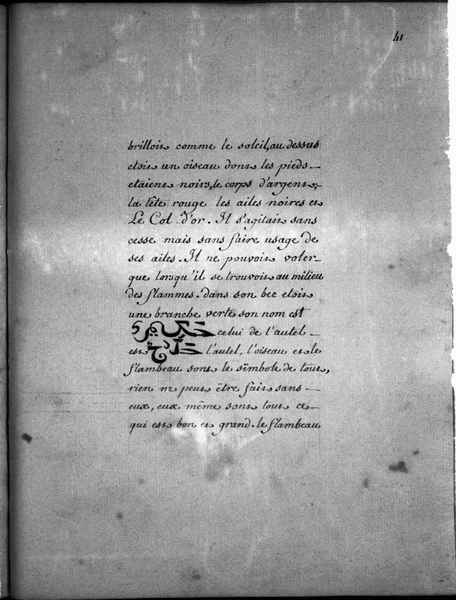 41
brilloit comme le soleil, au dessus
etoit un oiseau dont les pieds
etaient noirs, le corps d'argent,
la tête rouge les ailes noires et
Le Col d'or. Il s'agitait sans
cesse mais sans faire usage de
ses ailes. Il ne pouvoit voler
que lorsqu'il se trouvoit au milieu
des flammes. dans son bec etoit
une branche verte son nom est
celui de l'autel
est l'autel, l'oiseau et le
flambeau sont le simbole de tout,
rien ne peut être fait sans
eux, eux même sont tout ce
qui est bon et grand. le flambeau